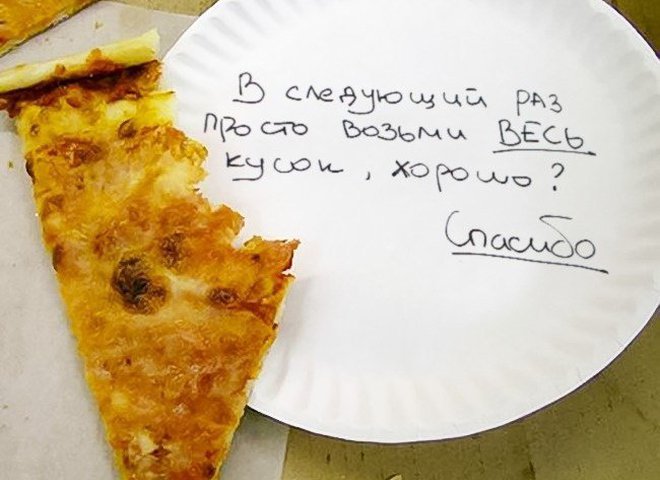 В следующий раз
просто возьми ВЕСЬ
кусок, хорошо?
Спасибо